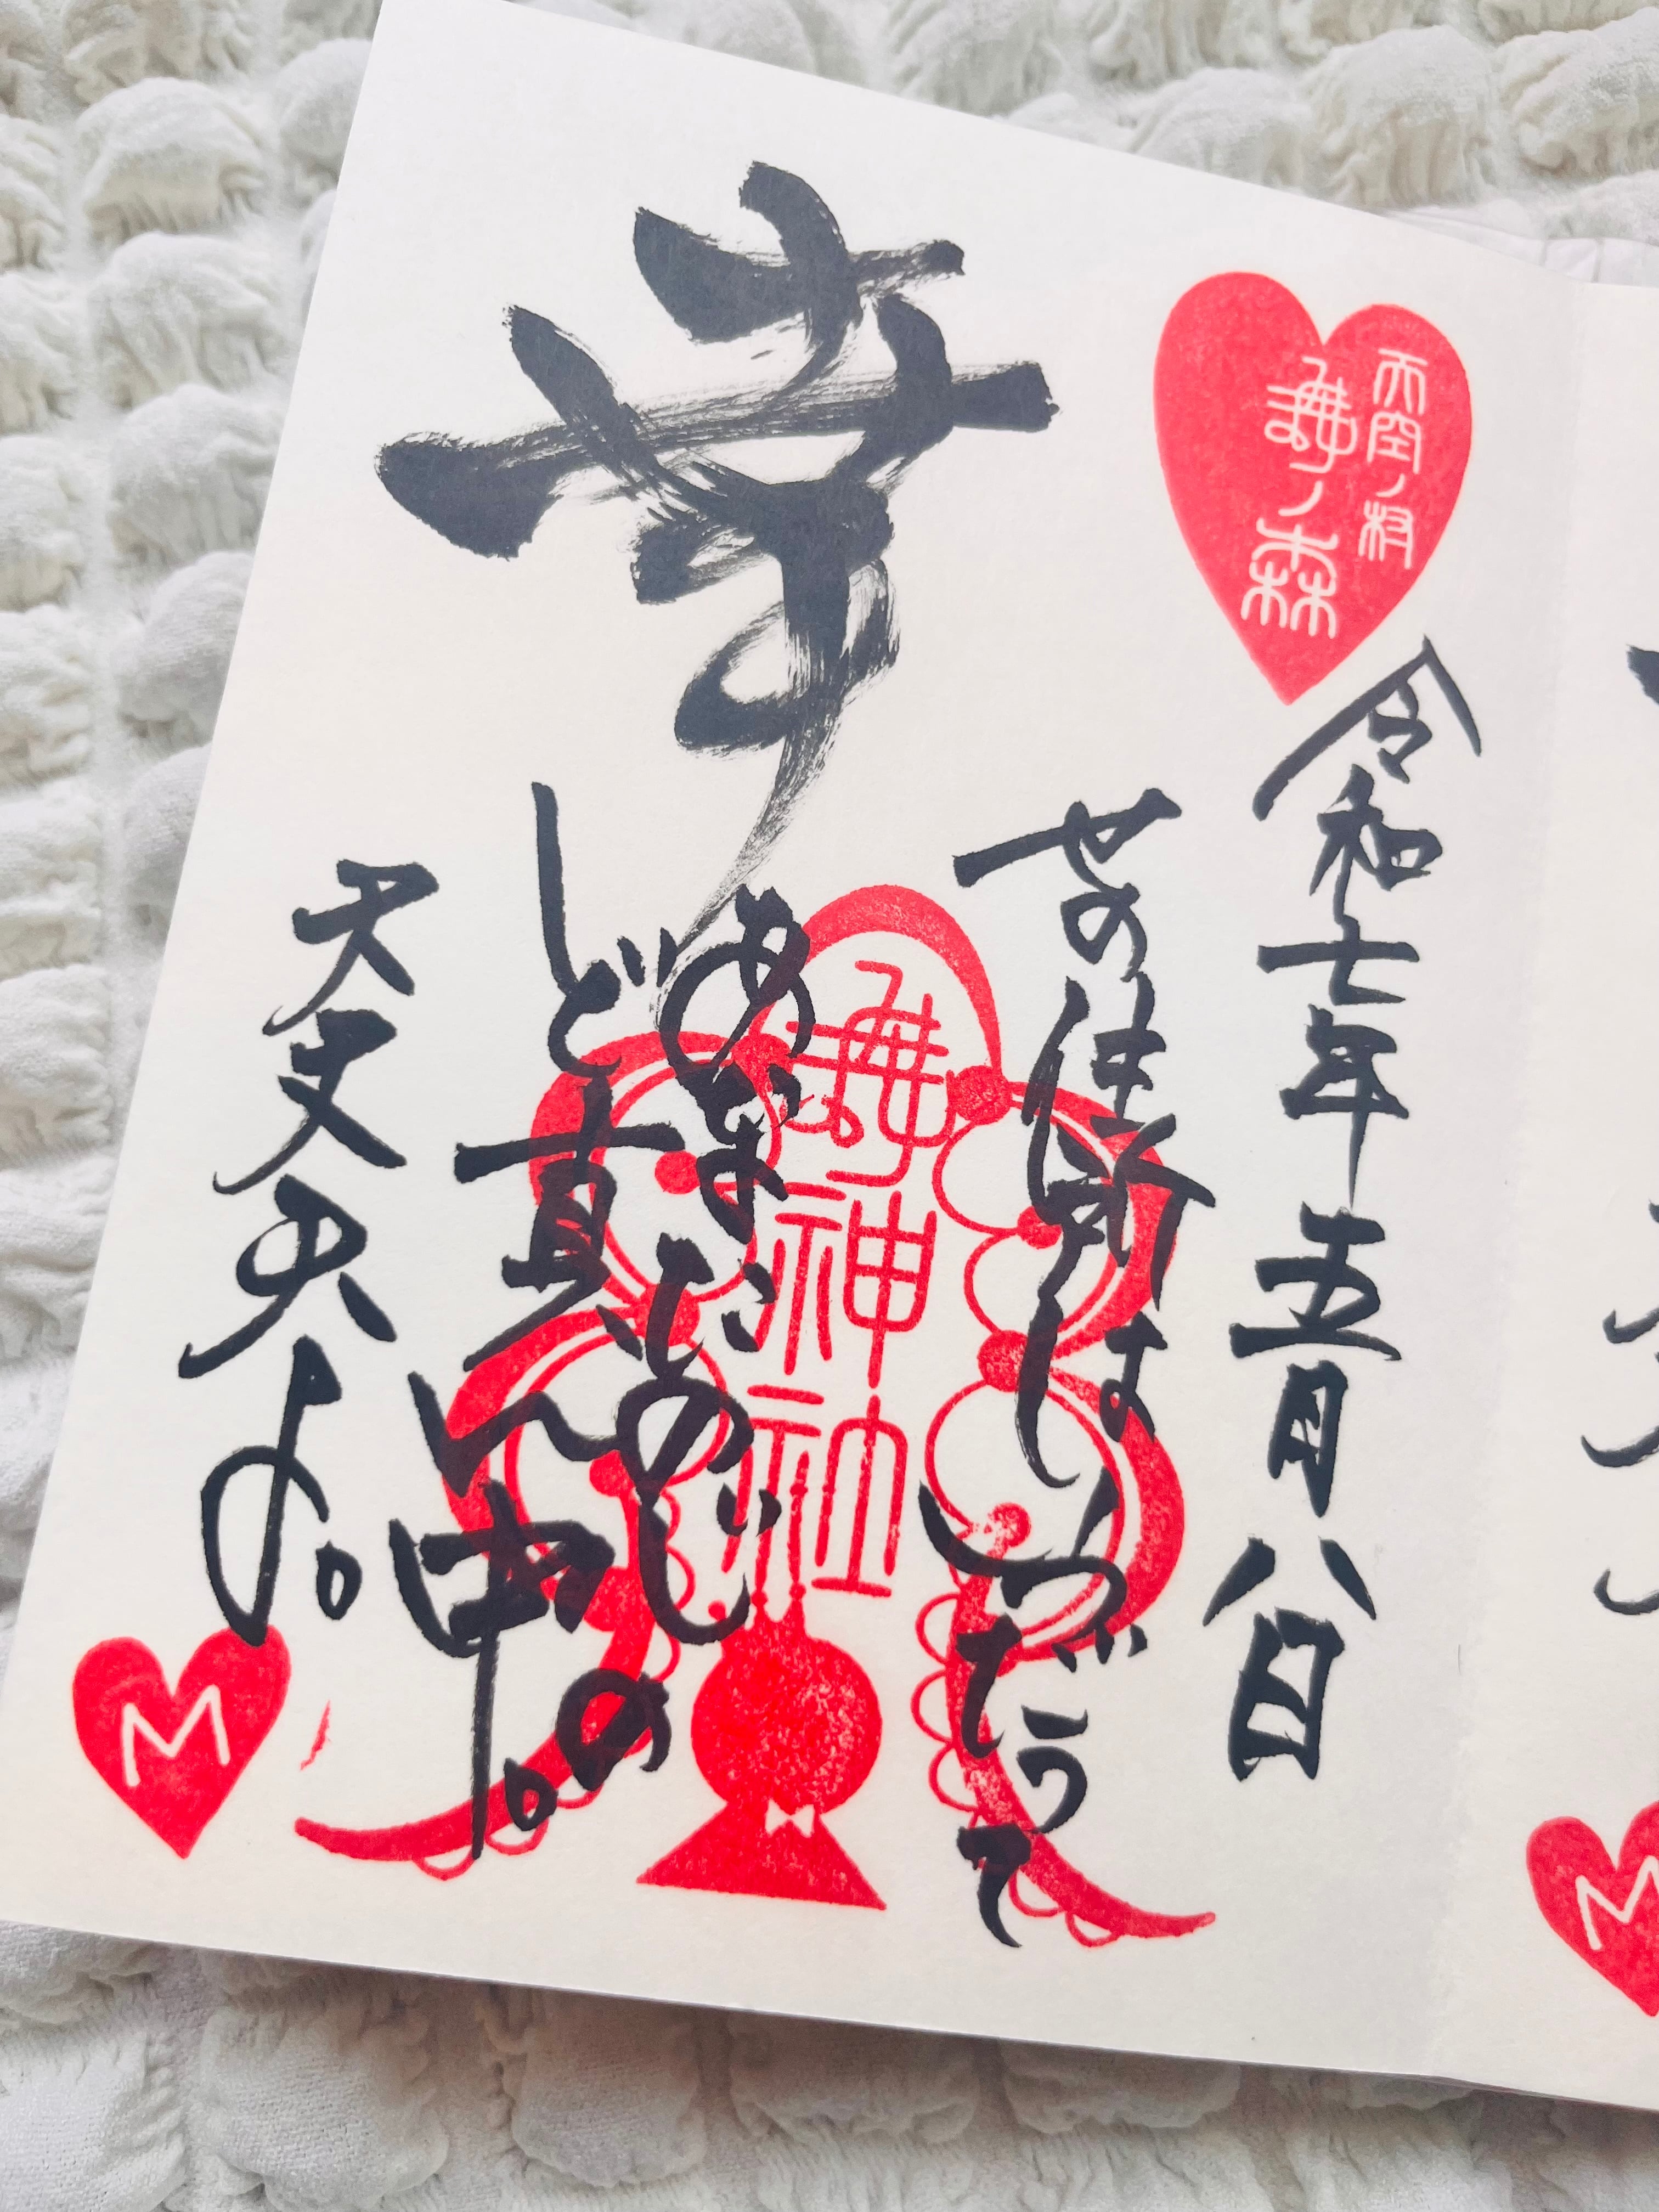 天空ノ村
舞ノ森
令和七年五月八日
幸
せの住所はいつだって
あなたの心の
ど真ん中。
大丈夫よ。
舞神社
M
M